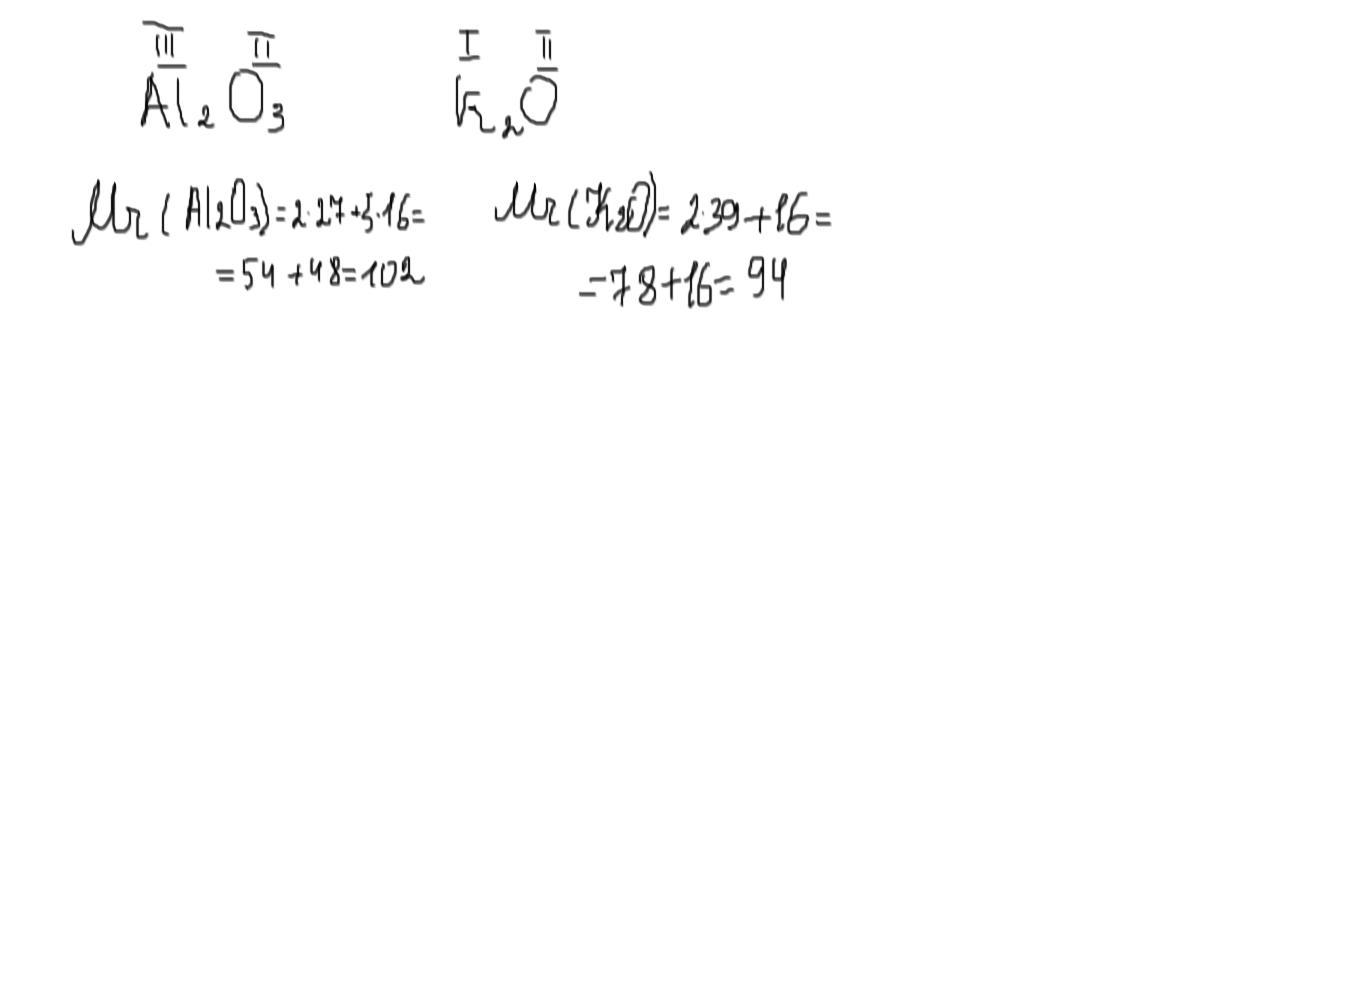 III II
Al₂O₃
I II
K₂O
Mr(Al₂O₃)=2·27+3·16=
=54+48=102
Mr(K₂O)=2·39+16=
=78+16=94